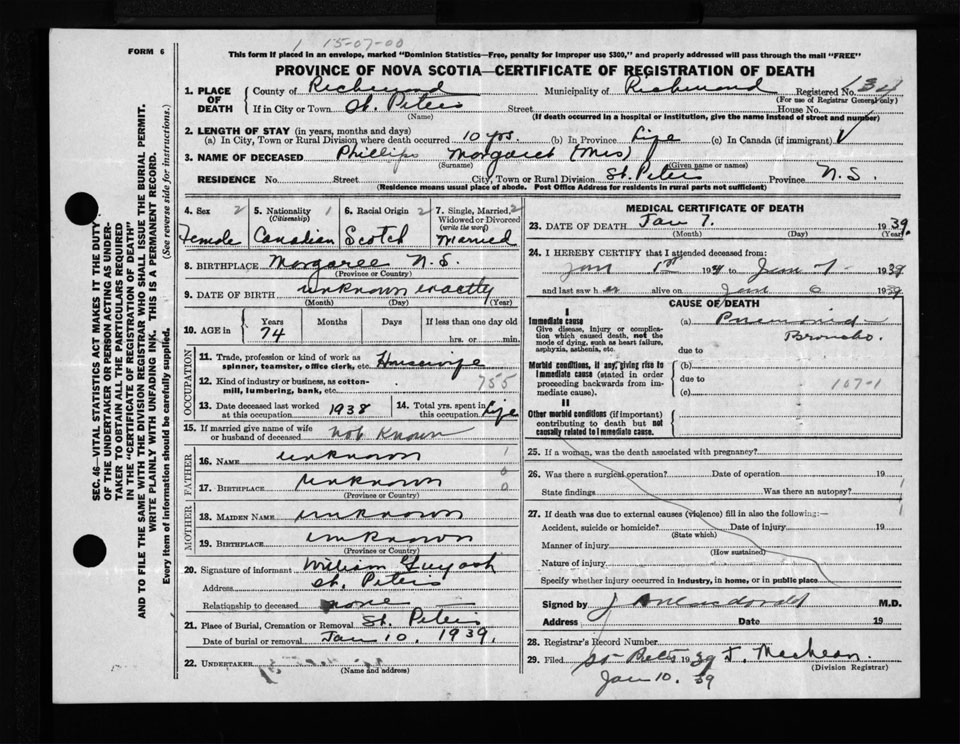 1 15-07-00
FORM 6
This form if placed in an envelope, marked "Dominion Statistics—Free, penalty for improper use $300," and properly addressed will pass through the mail "FREE"
PROVINCE OF NOVA SCOTIA—CERTIFICATE OF REGISTRATION OF DEATH
SEC. 46—VITAL STATISTICS ACT MAKES IT THE DUTY
OF THE UNDERTAKER OR PERSON ACTING AS UNDER-
TAKER TO OBTAIN ALL THE PARTICULARS REQUIRED
IN THE "CERTIFICATE OF REGISTRATION OF DEATH"
AND TO FILE THE SAME WITH THE DIVISION REGISTRAR WHO SHALL ISSUE THE BURIAL PERMIT.
WRITE PLAINLY WITH UNFADING INK. THIS IS A PERMANENT RECORD.
Every item of information should be carefully supplied. (See reverse side for instructions.)
1. PLACE OF DEATH
County of Richmond Municipality of Richmond Registered No. 134
(For use of Registrar General only)
If in City or Town St. Peters Street House No.
(Name) (If death occurred in a hospital or institution, give the name instead of street and number)
2. LENGTH OF STAY (in years, months and days)
(a) In City, Town or Rural Division where death occurred 10 yrs. (b) In Province Life (c) In Canada (if immigrant)
3. NAME OF DECEASED Phillips Margaret (Mrs)
(Surname) (Given name or names)
RESIDENCE No. Street City, Town or Rural Division St. Peters Province N.S.
(Residence means usual place of abode. Post Office Address for residents in rural parts not sufficient)
4. Sex 2 Female
5. Nationality 1 (Citizenship) Canadian
6. Racial Origin 2 Scotch
7. Single, Married, 2 Widowed or Divorced (write the word) Married
8. BIRTHPLACE Margaree N.S.
(Province or Country)
9. DATE OF BIRTH unknown exactly
(Month) (Day) (Year)
10. AGE in Years Months Days If less than one day old
74 hrs. or min.
OCCUPATION
11. Trade, profession or kind of work as
spinner, teamster, office clerk, etc. Housewife
12. Kind of industry or business, as cotton-
mill, lumbering, bank, etc. 755
13. Date deceased last worked
at this occupation 1938
14. Total yrs. spent in
this occupation Life
15. If married give name of wife
or husband of deceased not known
FATHER
16. NAME unknown 1
0
17. BIRTHPLACE unknown 0
(Province or Country)
MOTHER
18. MAIDEN NAME unknown
19. BIRTHPLACE unknown
(Province or Country)
20. Signature of informant William
Address St. Peters
Relationship to deceased none
21. Place of Burial, Cremation or Removal St. Peters
Date of burial or removal Jan 10. 1939.
22. UNDERTAKER
(Name and address)
MEDICAL CERTIFICATE OF DEATH
23. DATE OF DEATH Jan 7. 1939.
(Month) (Day) (Year)
24. I HEREBY CERTIFY that I attended deceased from:
Jan 1st 19 to Jan 7 1939
and last saw her alive on Jan 6 1939
CAUSE OF DEATH
I
Immediate cause
Give disease, injury or complica-
tion which caused death, not the
mode of dying, such as heart failure,
asphyxia, asthenia, etc.
(a) Pneumonia
Broncho.
due to
Morbid conditions, if any, giving rise to
immediate cause (stated in order
proceeding backwards from im-
mediate cause).
(b)
due to 107-1
(c)
II
Other morbid conditions (if important)
contributing to death but not
causally related to immediate cause.
25. If a woman, was the death associated with pregnancy?
26. Was there a surgical operation? Date of operation 19
State findings Was there an autopsy?
27. If death was due to external causes (violence) fill in also the following:—
Accident, suicide or homicide? Date of injury 19
(State which)
Manner of injury
(How sustained)
Nature of injury
Specify whether injury occurred in industry, in home, or in public place
Signed by M.D.
Address Date 19
28. Registrar's Record Number
29. Filed 1939
(Division Registrar)
Jan 10. 39